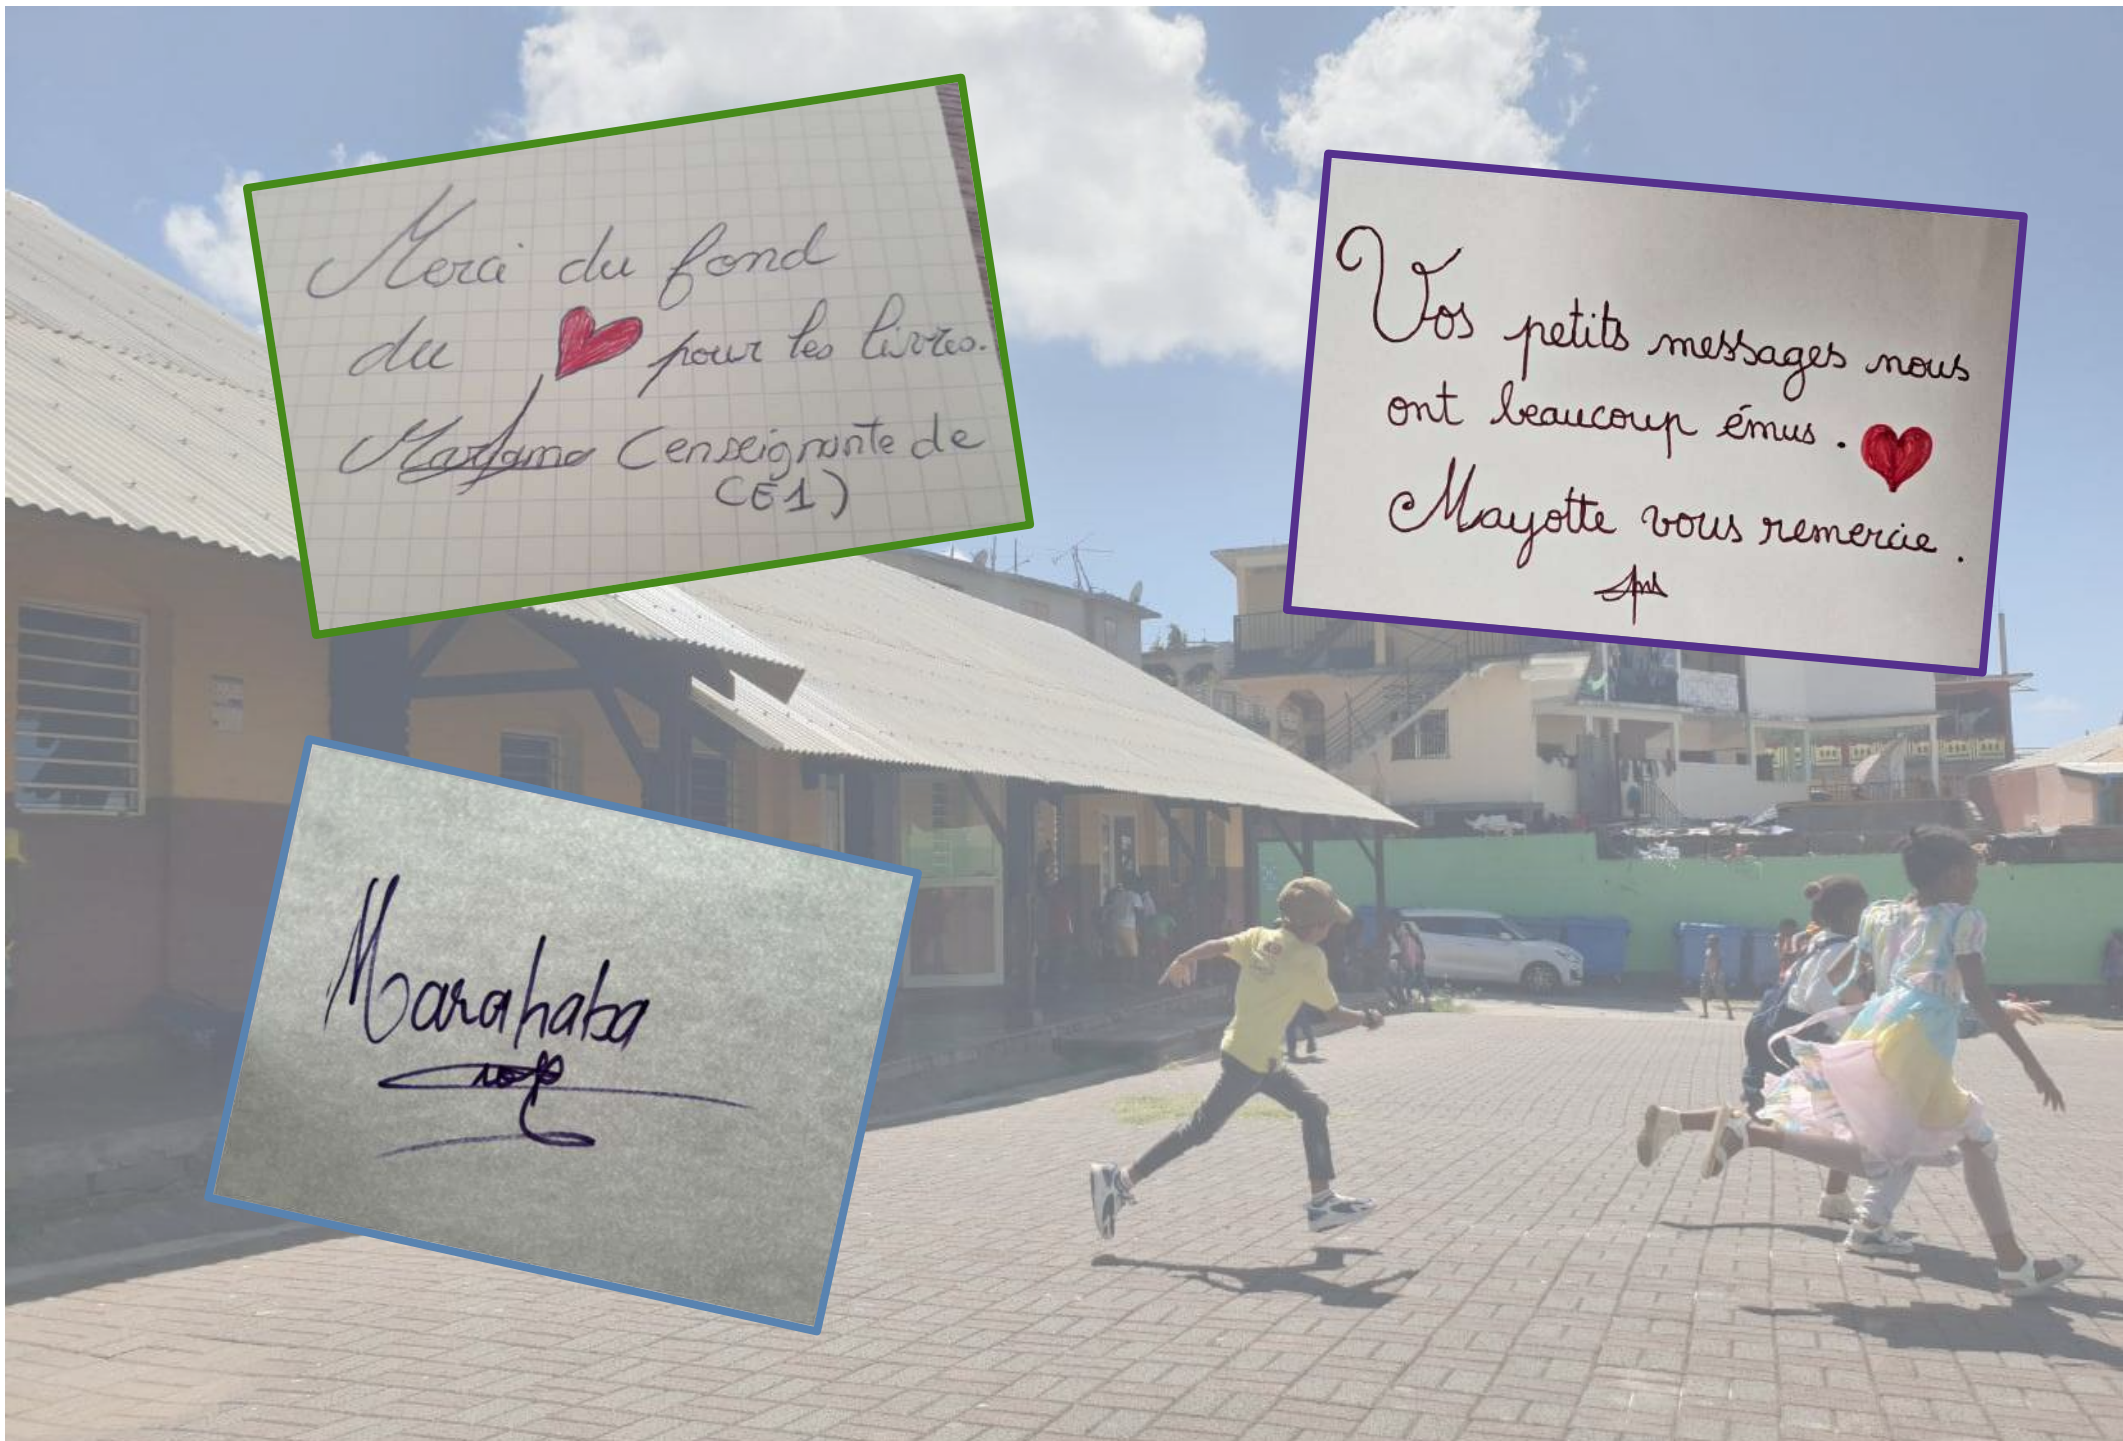 Merci du fond
du ❤ pour les livres.
(enseignante de
CE1)
Vos petits messages nous
ont beaucoup émus. ❤
Mayotte vous remercie.
Marahaba